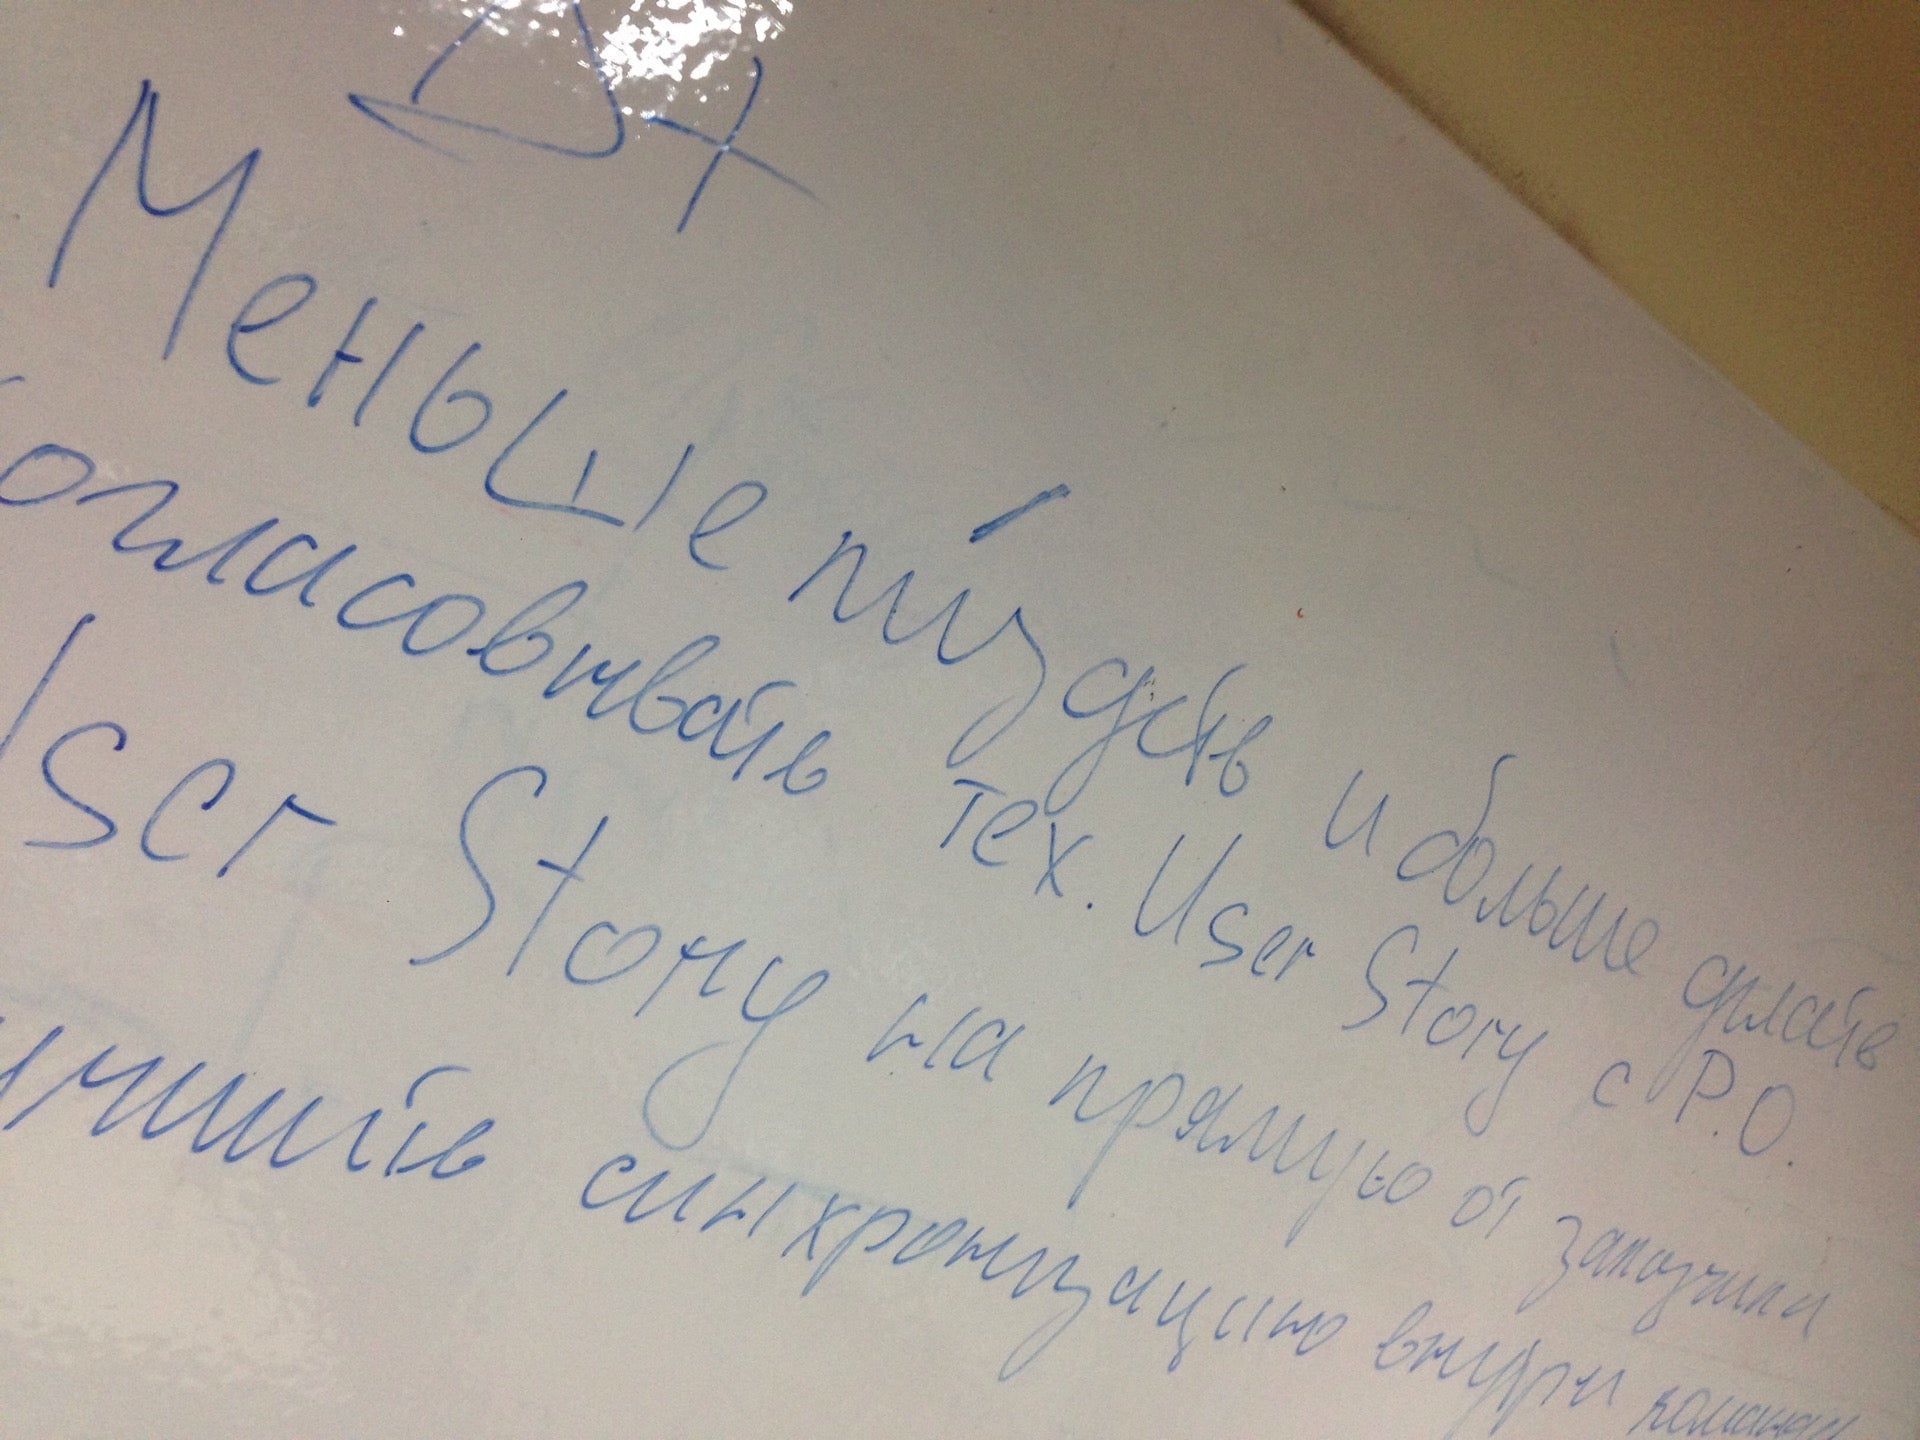 Меньше пиздеть и больше делать
огласовывать тех. User Story с P.O.
User Story на прямую от заказчика
учшить синхронизацию внутри команды